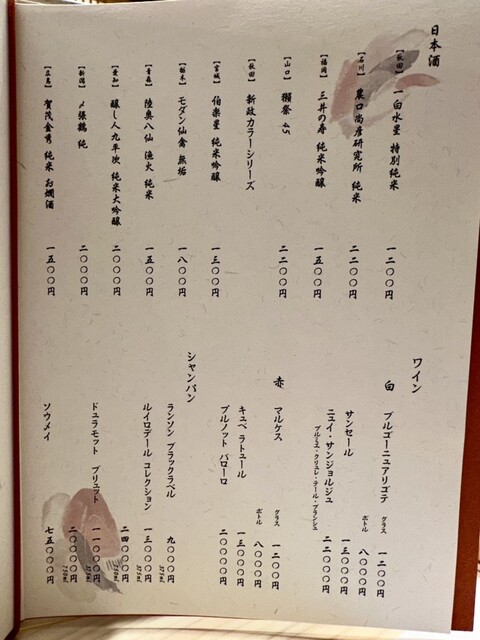 日本酒
【秋田】 一白水星 特別純米 一二〇〇円
【石川】 農口尚彦研究所 純米 二二〇〇円
【福岡】 三井の寿 純米吟醸 一五〇〇円
【山口】 獺祭 45 二二〇〇円
【秋田】 新政カラーシリーズ
【宮城】 伯楽星 純米吟醸 一三〇〇円
【栃木】 モダン仙禽 無垢 一八〇〇円
【青森】 陸奥八仙 漁火 純米 一五〇〇円
【愛知】 醸し人九平次 純米大吟醸 二〇〇〇円
【新潟】 〆張鶴 純 二〇〇〇円
【広島】 賀茂金秀 純米 お燗酒 一五〇〇円
ワイン
白 ブルゴーニュアリゴテ グラス 一二〇〇円
ボトル 八〇〇〇円
サンセール 一三〇〇〇円
ニュイ・サンジョルジュ 二二〇〇〇円
プルミエ・クリュレ・テール・ブランシュ
赤 マルケス グラス 一二〇〇円
ボトル 八〇〇〇円
キュベ ラトュール 一三〇〇〇円
ブルノット バローロ 二〇〇〇〇円
シャンパン
ランソン ブラックラベル 375ml 九〇〇〇円
ルイロデール コレクション 375ml 一三〇〇〇円
750ml 二四〇〇〇円
ドュラモット ブリュット 375ml 一一〇〇〇円
750ml 二〇〇〇〇円
ソウメイ 七五〇〇〇円